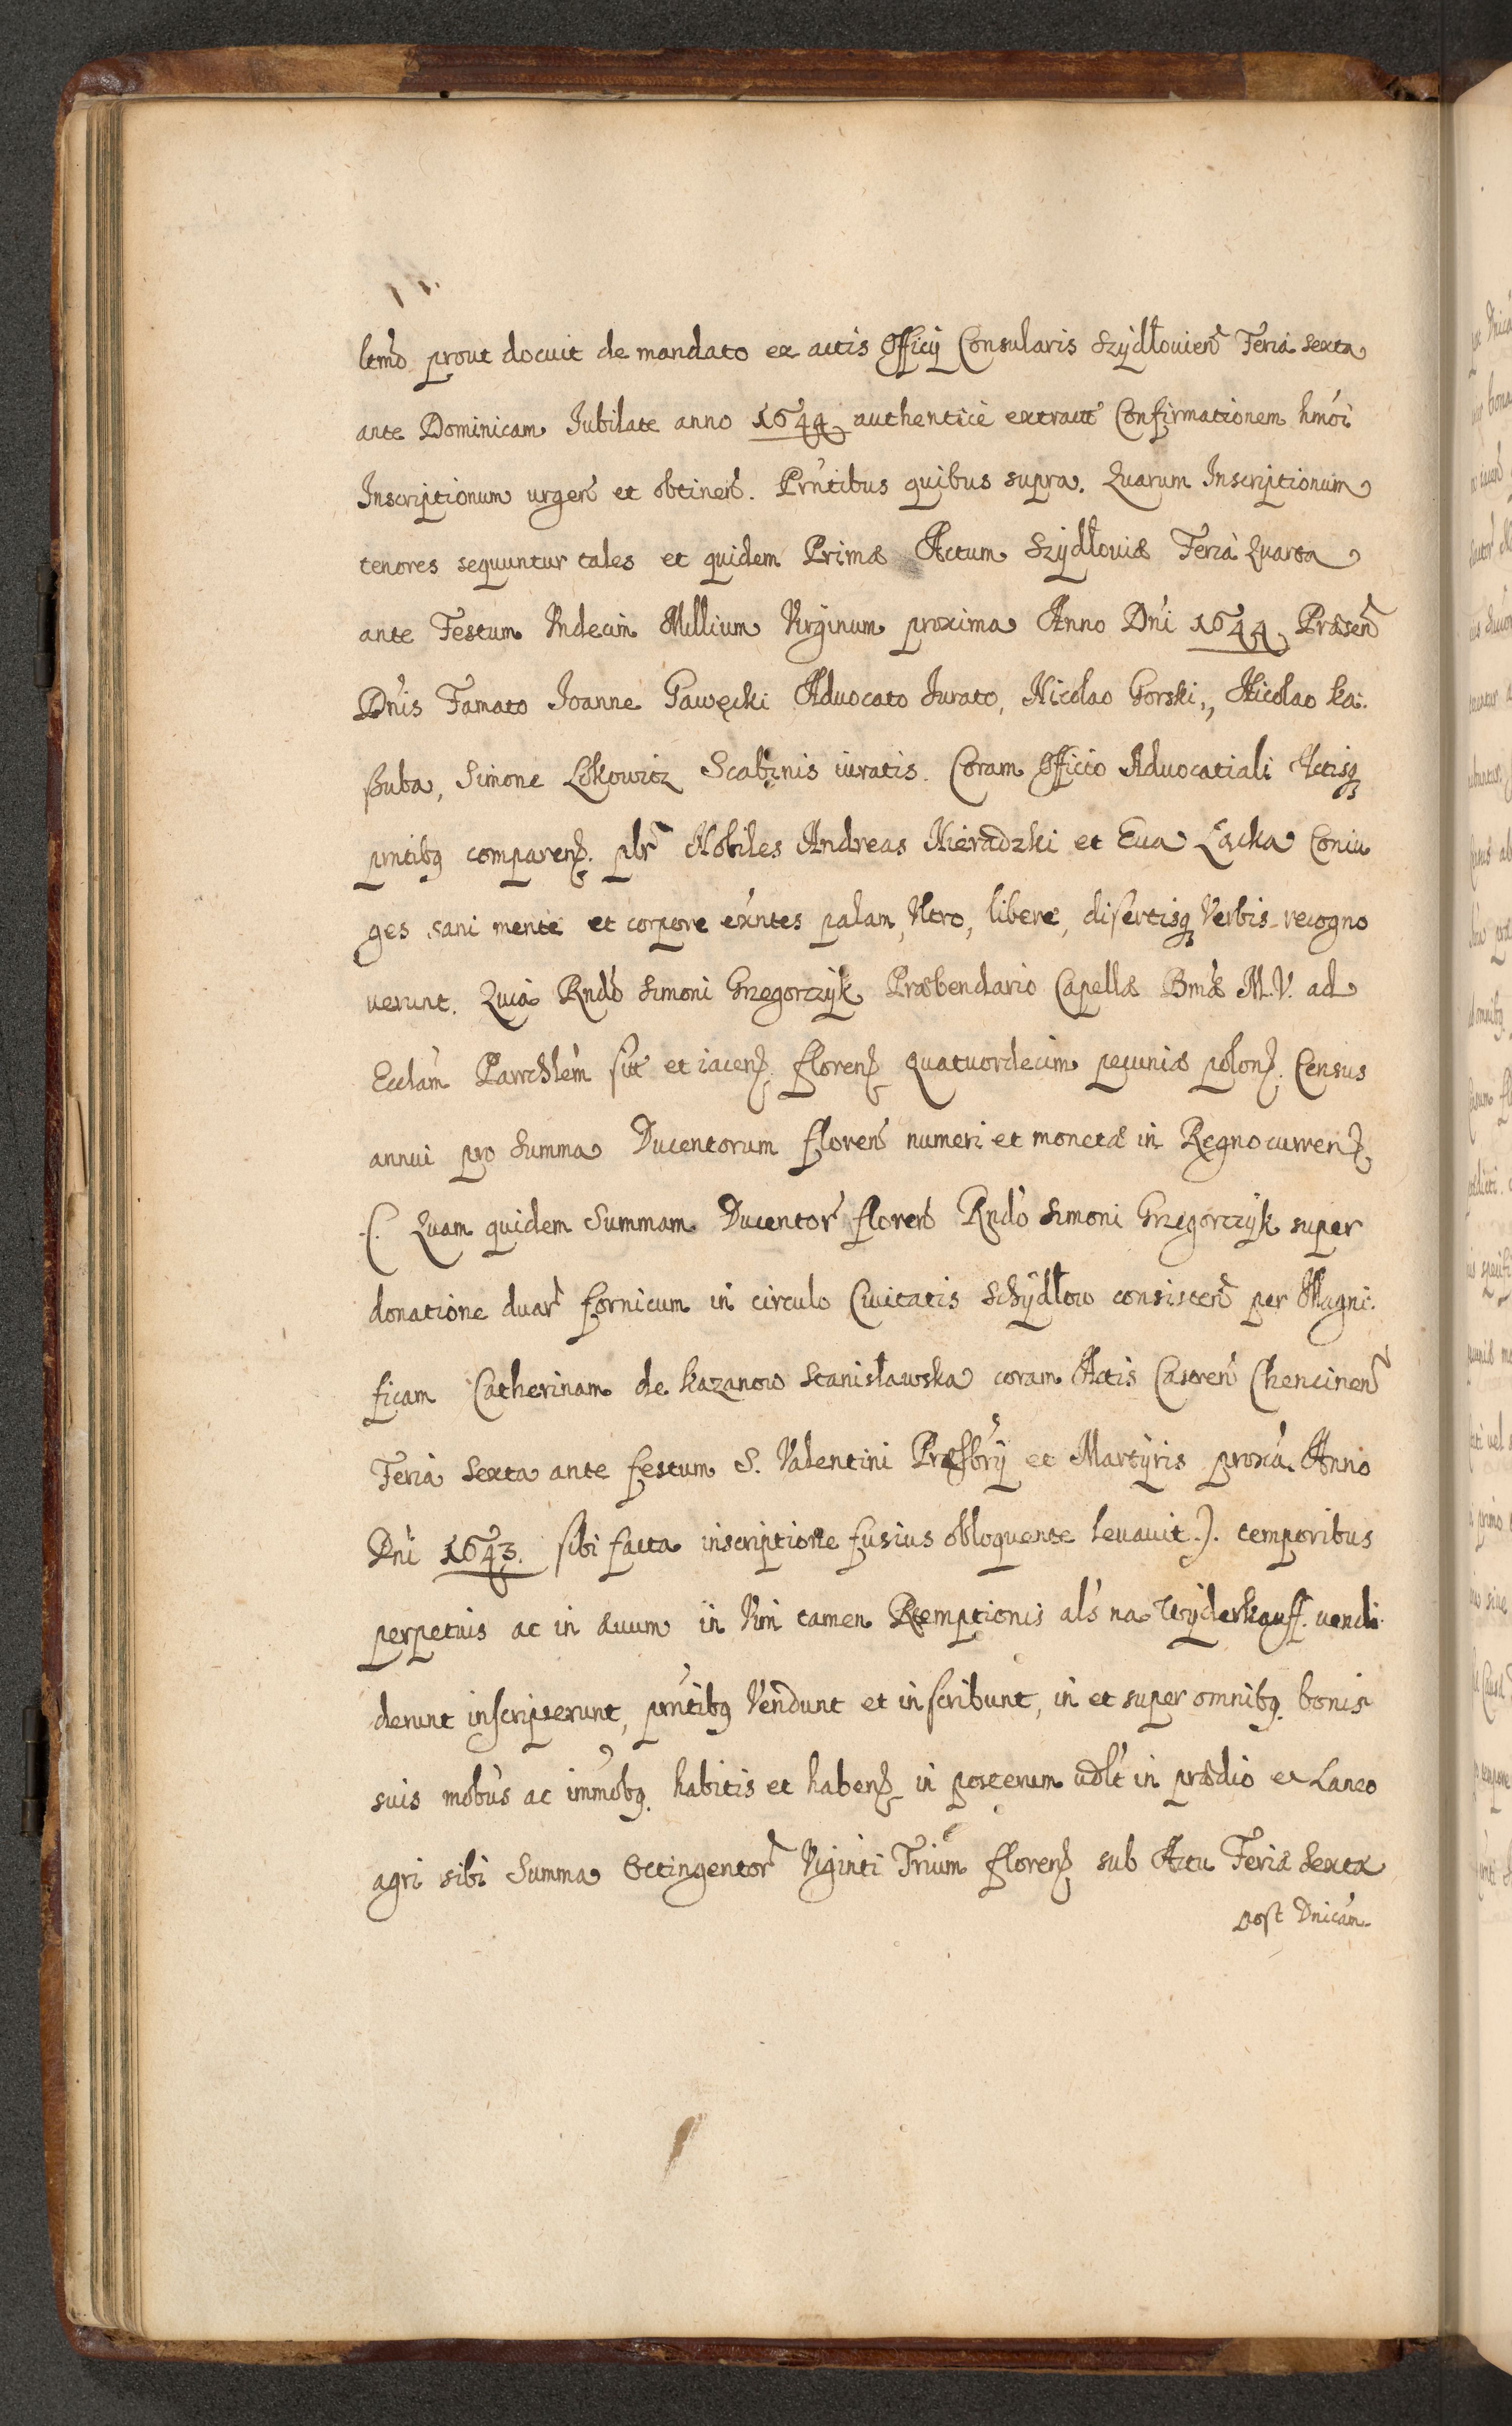 ltmo prout docuit de mandato ex actis Officij Consularis Szydłovien Feria sexta
ante Dominicam Jubilate anno 1644 authenticè extract Confirmationem hmoi
Inscriptionum urgen et obtinen. Prntibus quibus supra. Quarum Inscriptionum
tenores sequuntur tales et quidem Primæ Actum Szydłoviæ Feria Quarta
ante Festum Vndecim Millium Virginum proxima Anno Dni 1644 Præsen
Dnis Famato Joanne Gawęcki Advocato Jurato, Nicolao Gorski, Nicolao Ka:
ßuba, Simone Likowicz Scabinis iuratis. Coram Officio Advocatiali Actisq
prntibq comparen. pbr Nobiles Andreas Nieradzki et Eua Łącka Coniu
ges sani mente et corpore exntes palam, Vltro, liberè, disertisq Verbis recogno
uerunt. Quia Rndo Simoni Grzegorczÿk Præbendario Capellæ Bmæ M.V. ad
Ecclam Parochlem sit et iacen. floren quatuordecim pecuniæ polon. Census
annui pro Summa Ducentorum floren numeri et monetæ in Regno curren
.(. Quam quidem Summam Ducentor floren Rndo Simoni Grzegorczÿk super
donatione duar fornicum in circulo Ciuitatis Schÿdłow consisten per Magni:
ficam Catherinam de Kazanow Stanisławska coram Actis Castren Chencinen
Feria Sexta ante festum S. Valentini Præsbrij et Martÿris proxa. Anno
Dni 1643. sibi facta inscriptione fusius obloquente leuauit.). temporibus
perpetuis ac in æuum in Vim tamen Reemptionis als na Wÿderkauff. vendi
derunt inscripserunt, prntibq Vendunt et inscribunt, in et super omnibq. bonis
suis mobus ac immobq. habitis et haben in posterum uolt in prædio et Laneo
agri sibi Summa Octingentor Viginti Trium floren sub Actu Feriæ Sextæ
post Dnicam